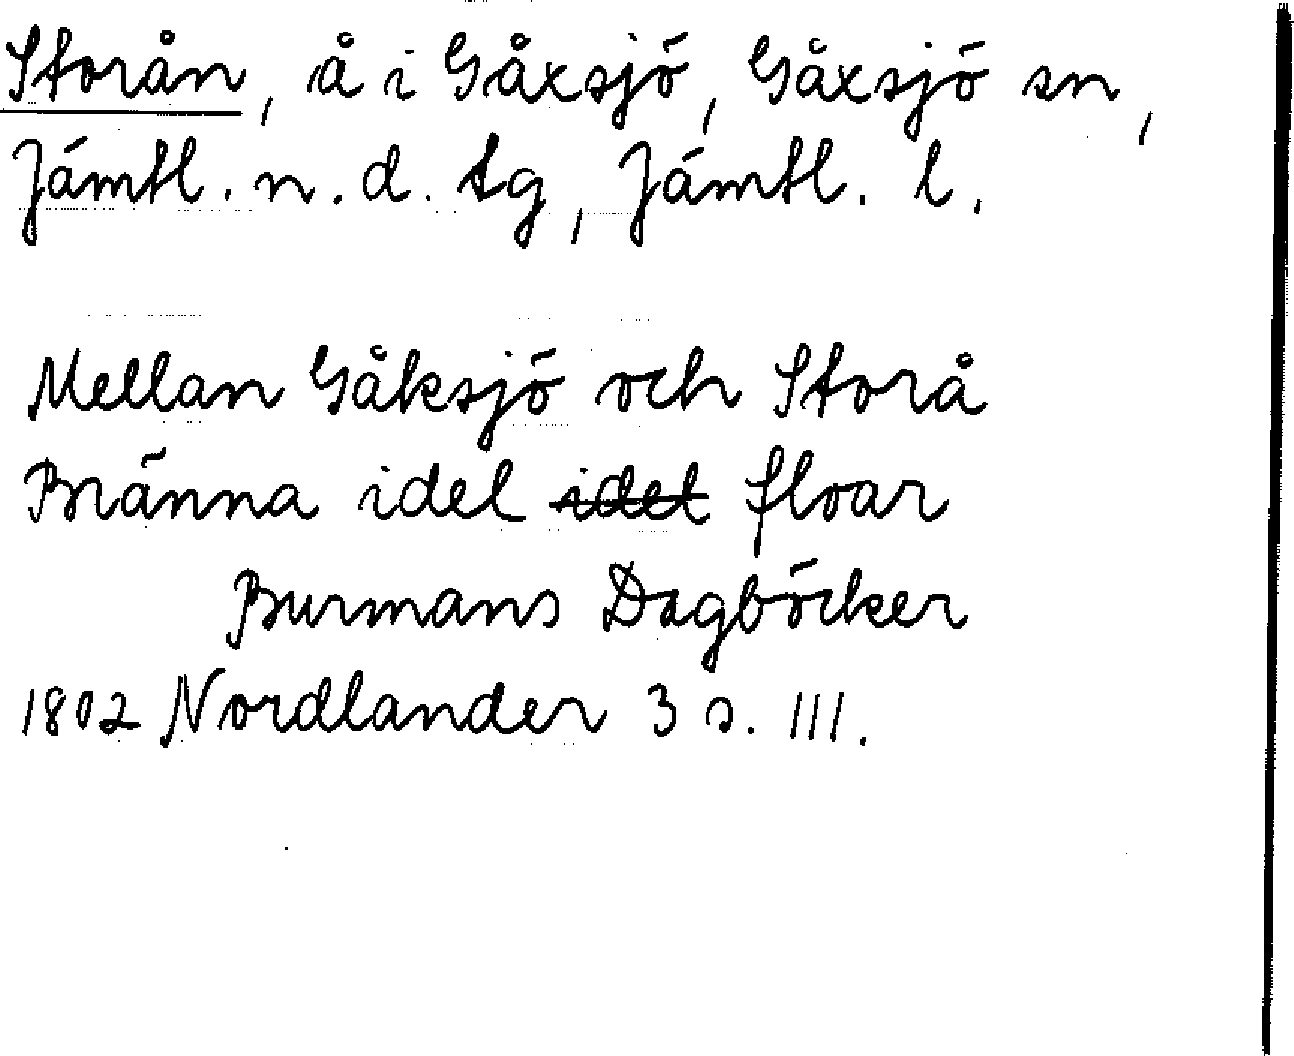 Storån, å i Gåxsjö, Gåxsjö sn,
Jämtl. n. d. tg, Jämtl. l.
Mellan Gåksjö och Storå
Bränna idel idel floar
Burmans Dagböcker
1802 Nordlander 3 s. 111.